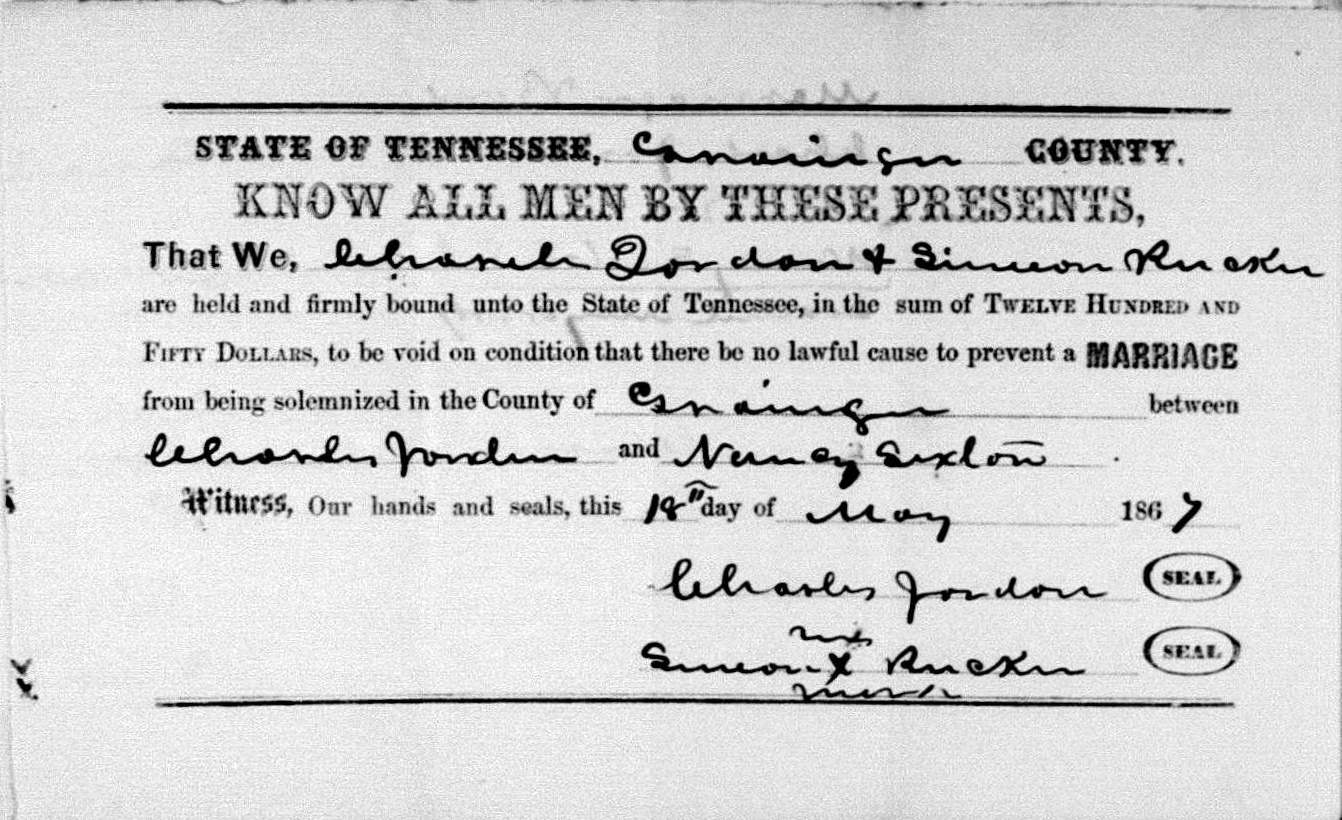 STATE OF TENNESSEE, Grainger COUNTY.
KNOW ALL MEN BY THESE PRESENTS,
That We, Charles Jordon & Simeon Rucker
are held and firmly bound unto the State of Tennessee, in the sum of TWELVE HUNDRED AND
FIFTY DOLLARS, to be void on condition that there be no lawful cause to prevent a MARRIAGE
from being solemnized in the County of Grainger between
Charles Jordon and Nancy Sexton
Witness, Our hands and seals, this 18th day of May 1867
Charles Jordon SEAL
his
Simeon X Rucker SEAL
mark